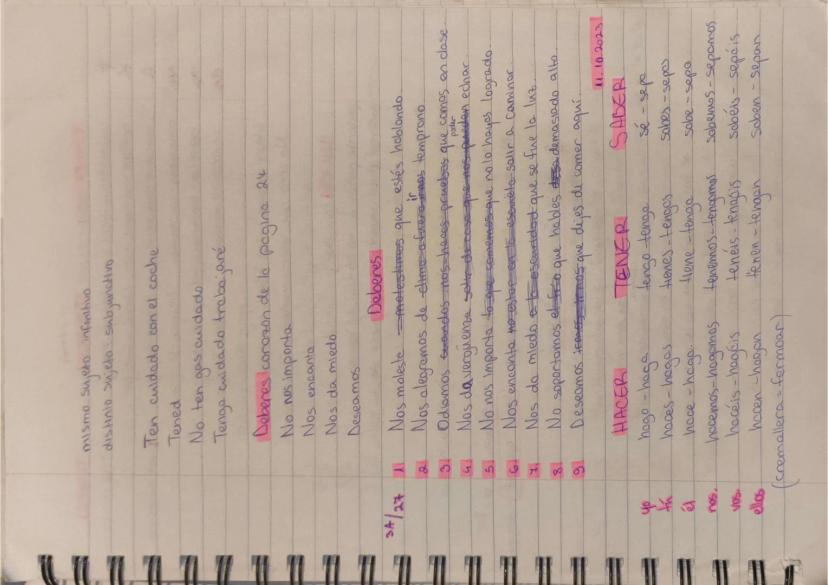 mismo sujeto infinitivo
distinto sujeto - subjuntivo
Ten cuidado con el coche
Tened
No ten gas cuidado
Tenga cuidado trabajaré
Deberes corazon de la pagina 27
No nos importa
Nos encanta
Nos da miedo
Deseamos
Deberes
3A/27 1. Nos moleste que estés hablando
2. Nos alegramos de ir temprano
3. Odiamos que comas en clase.
4. Nos da vergüenza poder echar.
5. No nos importa que no lo hayas logrado
6. Nos encanta salir a caminar.
7. Nos da miedo que se fue la luz.
8. No soportamos que hables demasiado alto.
9. Deseamos que dijes de comer aquí.
11.10.2023
HACER TENER SABER
yo hago - haga tengo - tenga sé - sepa
tú haces - hagas tienes - tengas sabes - sepas
él hace - haga tiene - tenga sabe - sepa
nos. hacemos - hagamos tenemos - tengamos sabemos - sepamos
vos. hacéis - hagáis tenéis - tengáis sabéis - sepáis
ellos hacen - hagan tienen - tengan saben - sepan
(cremallera = fermoar)